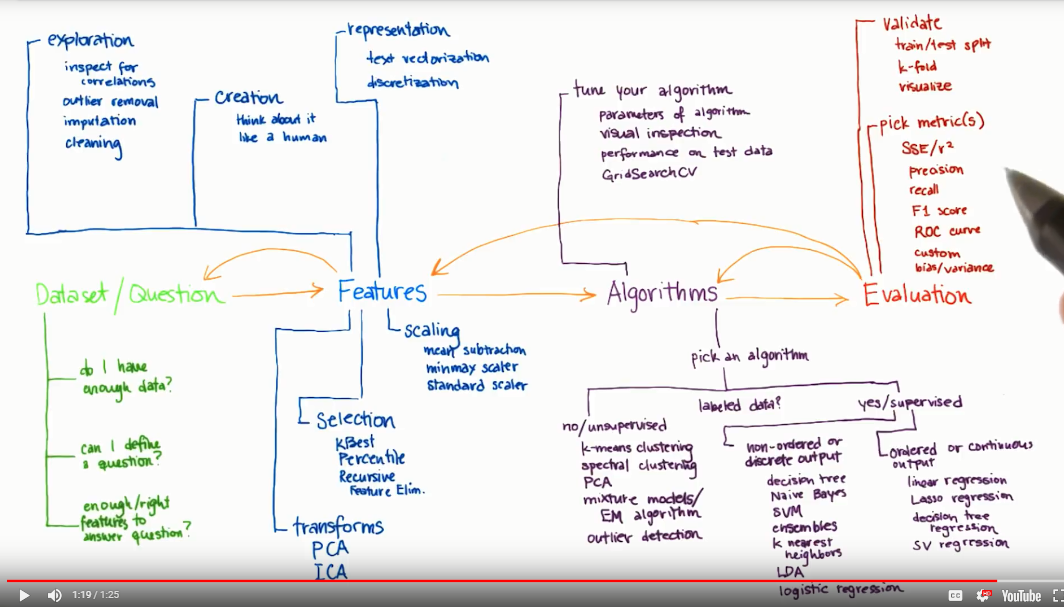 exploration
inspect for
correlations
outlier removal
imputation
cleaning
creation
think about it
like a human
representation
text vectorization
discretization
tune your algorithm
parameters of algorithm
visual inspection
performance on test data
GridSearchCV
validate
train/test split
k-fold
visualize
pick metric(s)
SSE/r²
precision
recall
F1 score
ROC curve
custom
bias/variance
Dataset/Question
Features
Algorithms
Evaluation
do I have
enough data?
can I define
a question?
enough/right
features to
answer question?
scaling
mean subtraction
minmax scaler
standard scaler
selection
KBest
Percentile
Recursive
Feature Elim.
transforms
PCA
ICA
pick an algorithm
labeled data?
no/unsupervised
k-means clustering
spectral clustering
PCA
mixture models/
EM algorithm
outlier detection
yes/supervised
non-ordered or
discrete output
decision tree
Naive Bayes
SVM
ensembles
k nearest
neighbors
LDA
logistic regression
ordered or continuous
output
linear regression
Lasso regression
decision tree
regression
SV regression
1:19 / 1:25
CC
HD
YouTube